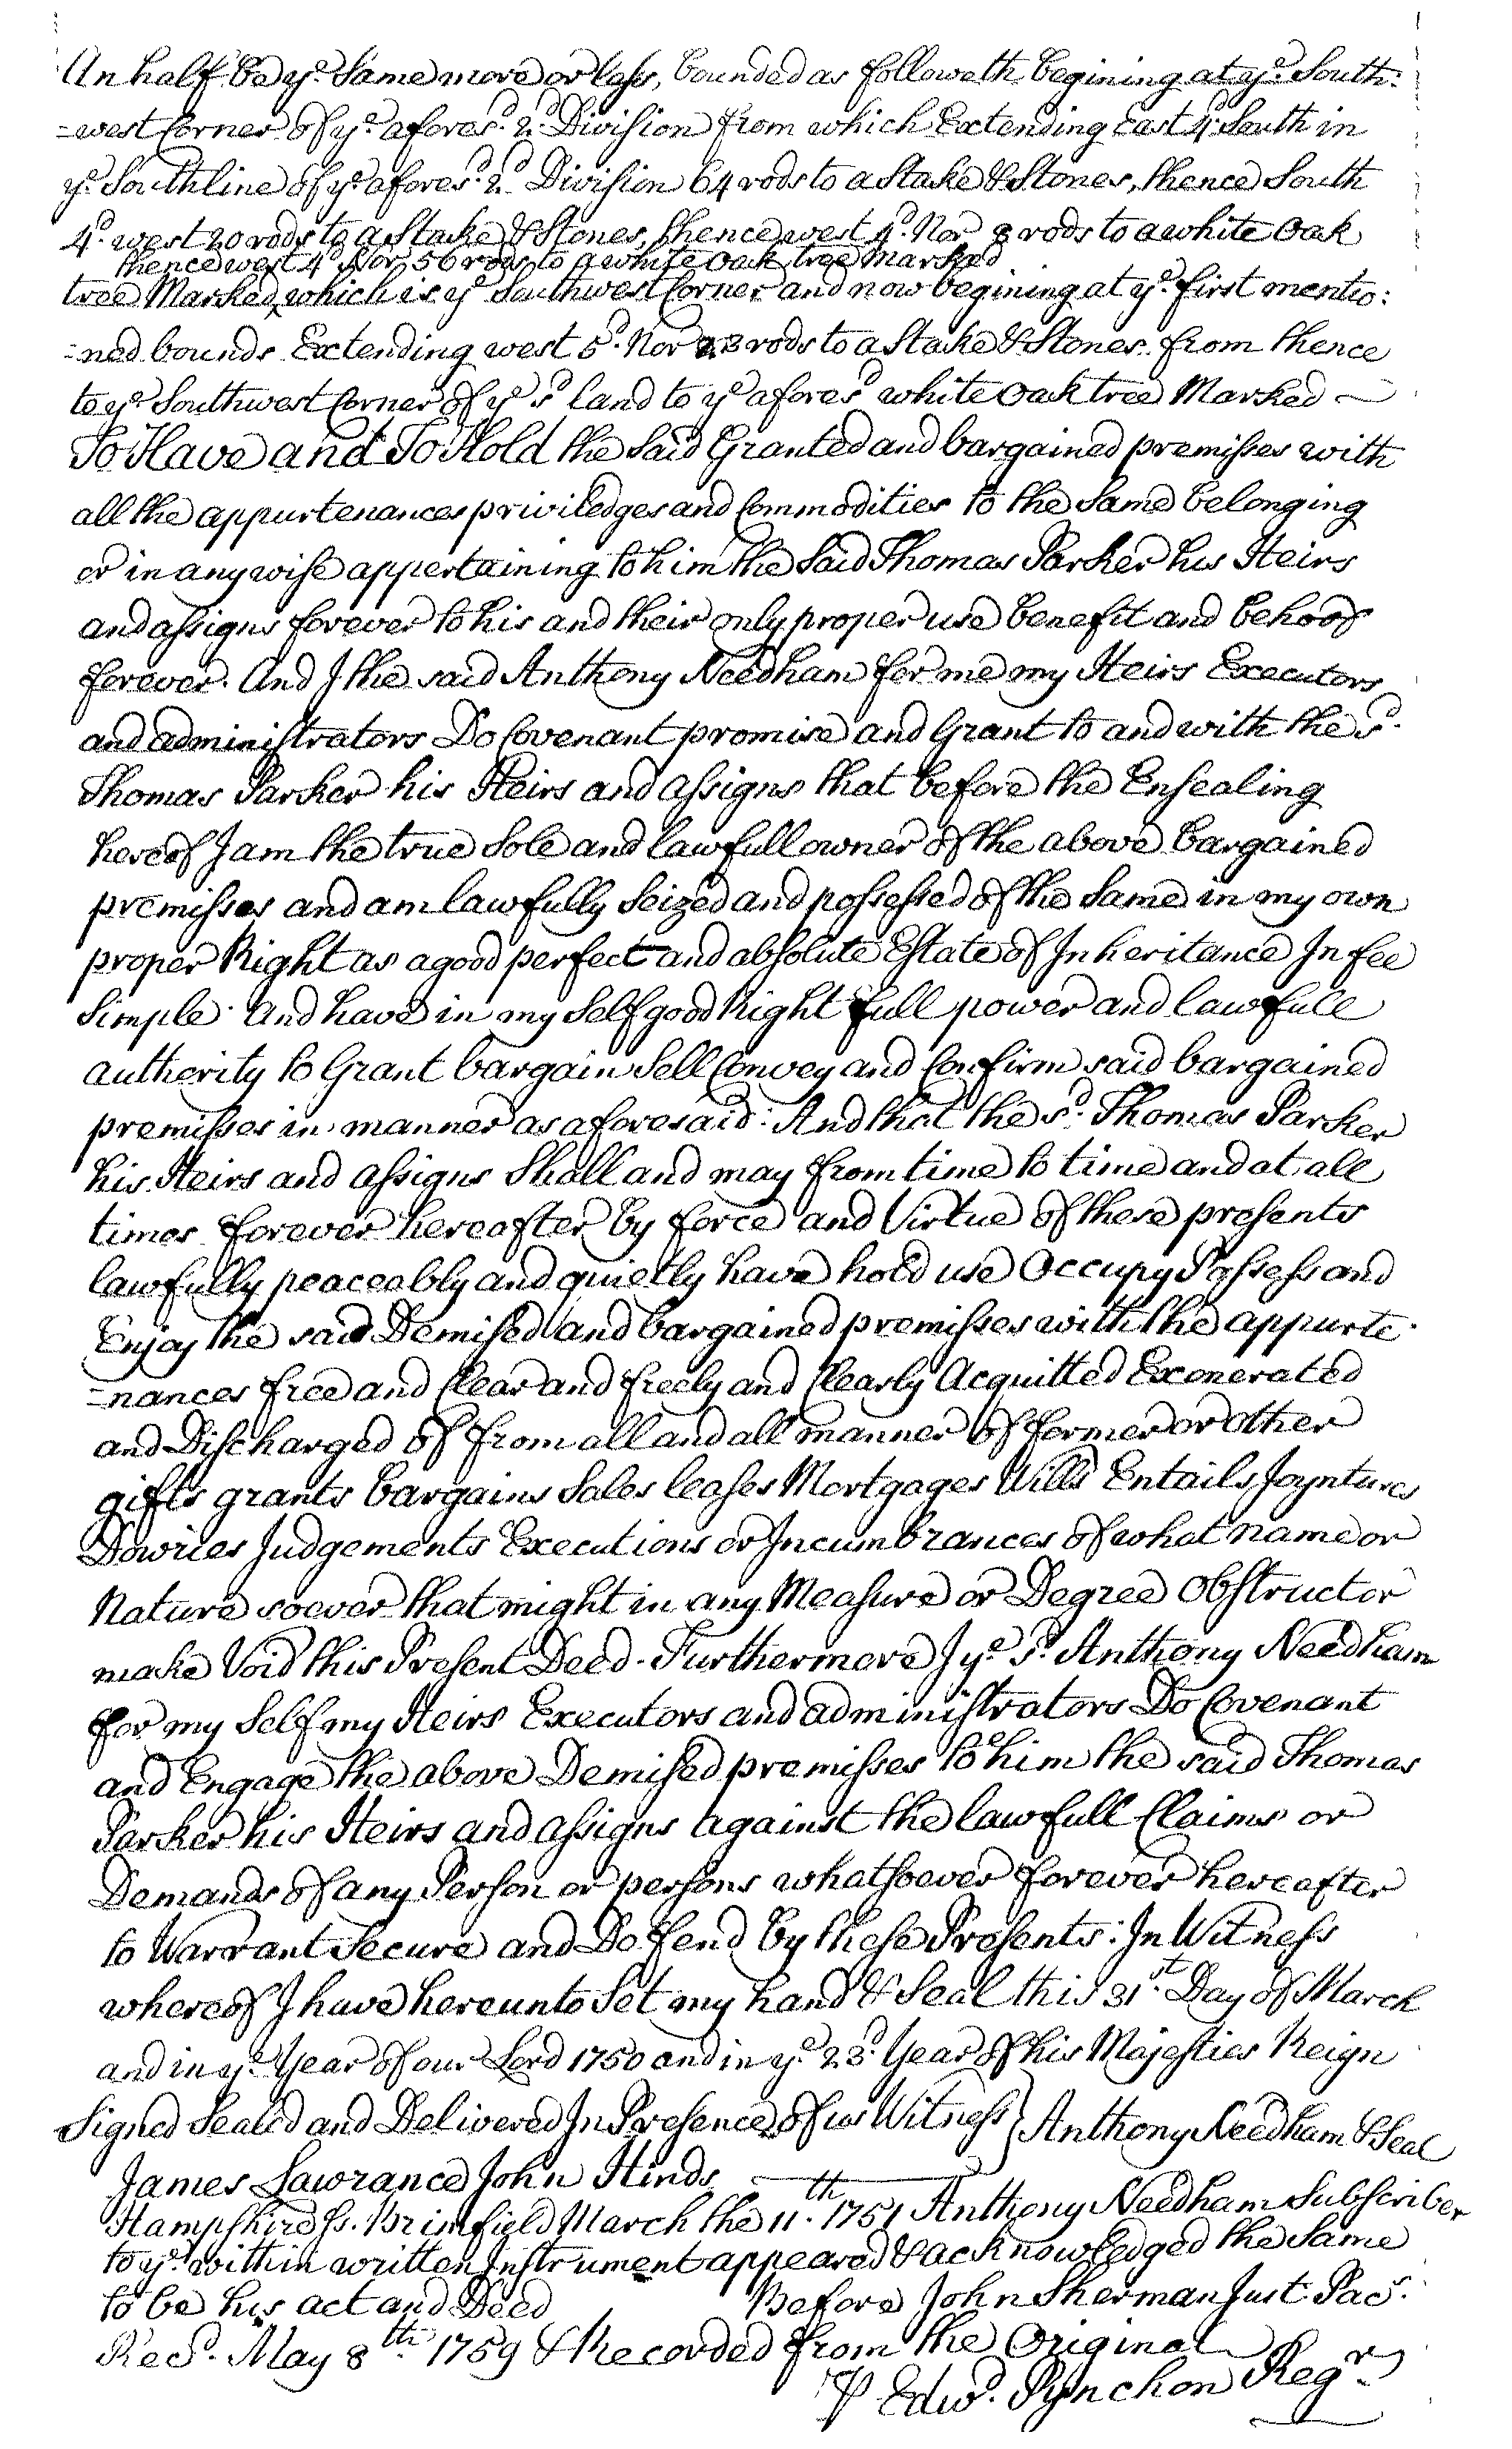 An half be ye. Same more or less, bounded as followeth begining at ye. South=
=west Corner of ye. afores.d 2.d Division from which Extending East 4.d South in
ye. South line of ye. afores.d 2.d Division 64 rods to a Stake & Stones, thence South
4.d west 20 rods to a Stake & Stones, thence west 4.d Nor 8 rods to a white Oak
thence west 4.d Nor 56 rods to a white oak tree marked
tree Marked, which is ye Southwest Corner and now begining at ye. first mentio=
=ned bounds Extending west 5.d Nor 23 rods to a Stake & Stones. from thence
to ye. Southwest Corner of ye sd land to ye afores.d white Oak tree Marked —
To Have and To Hold the Said Granted and bargained premisses with
all the appurtenances priviledges and Commodities to the Same belonging
or in any wise appertaining to him the Said Thomas Parker his Heirs
and assigns forever to his and their only proper use benefit and behoof
forever. And I the said Anthony Needham for me my Heirs Executors
and administrators Do Covenant promise and Grant to and with the sd.
Thomas Parker his Heirs and assigns that before the Ensealing
hereof I am the true Sole and lawfull owner of the above bargained
premisses and am lawfully Seized and possessed of the Same in my own
proper Right as a good perfect and absolute Estate of Inheritance In fee
Simple. And have in my Self good Right full power and lawfull
authority to Grant bargain Sell Convey and Confirm said bargained
premisses in manner as aforesaid: And that the sd. Thomas Parker
his Heirs and assigns Shall and may from time to time and at all
times forever hereafter by force and Virtue of these presents
lawfully peaceably and quietly have hold use Occupy Possess and
Enjoy the said Demised and bargained premisses with the appurte=
=nances free and Clear and freely and Clearly Acquitted Exonerated
and Discharged of from all and all manner of former or other
gifts grants bargains Sales leases Mortgages Wills Entails Joyntures
Dowries Judgements Executions or Incumbrances of what name or
Nature soever that might in any Measure or Degree Obstruct or
make Void this Present Deed. Furthermore I ye. sd. Anthony Needham
for my Self my Heirs Executors and administrators Do Covenant
and Engage the above Demised premisses to him the said Thomas
Parker his Heirs and assigns against the lawfull Claims or
Demands of any Person or persons whatsoever forever hereafter
to Warrant Secure and Defend by these Presents: In Witness
whereof I have hereunto Set my hand & Seal this 31st. Day of March
and in ye. Year of our Lord 1750 and in ye. 23.d Year of his Majesties Reign
Signed Sealed and Delivered In Presence of us Witness } Anthony Needham & Seal
James Lawrance John Hinds
Hampshire Ss. Brimfield March the 11.th 1751 Anthony Needham Subscriber
to ye. within written Instrument appeared & acknowledged the Same
to be his act and Deed Before John Sherman Just: Pacs.
Recd. May 8th. 1759 & Recorded from the Original
⅌ Edwd. Pynchon Regr.